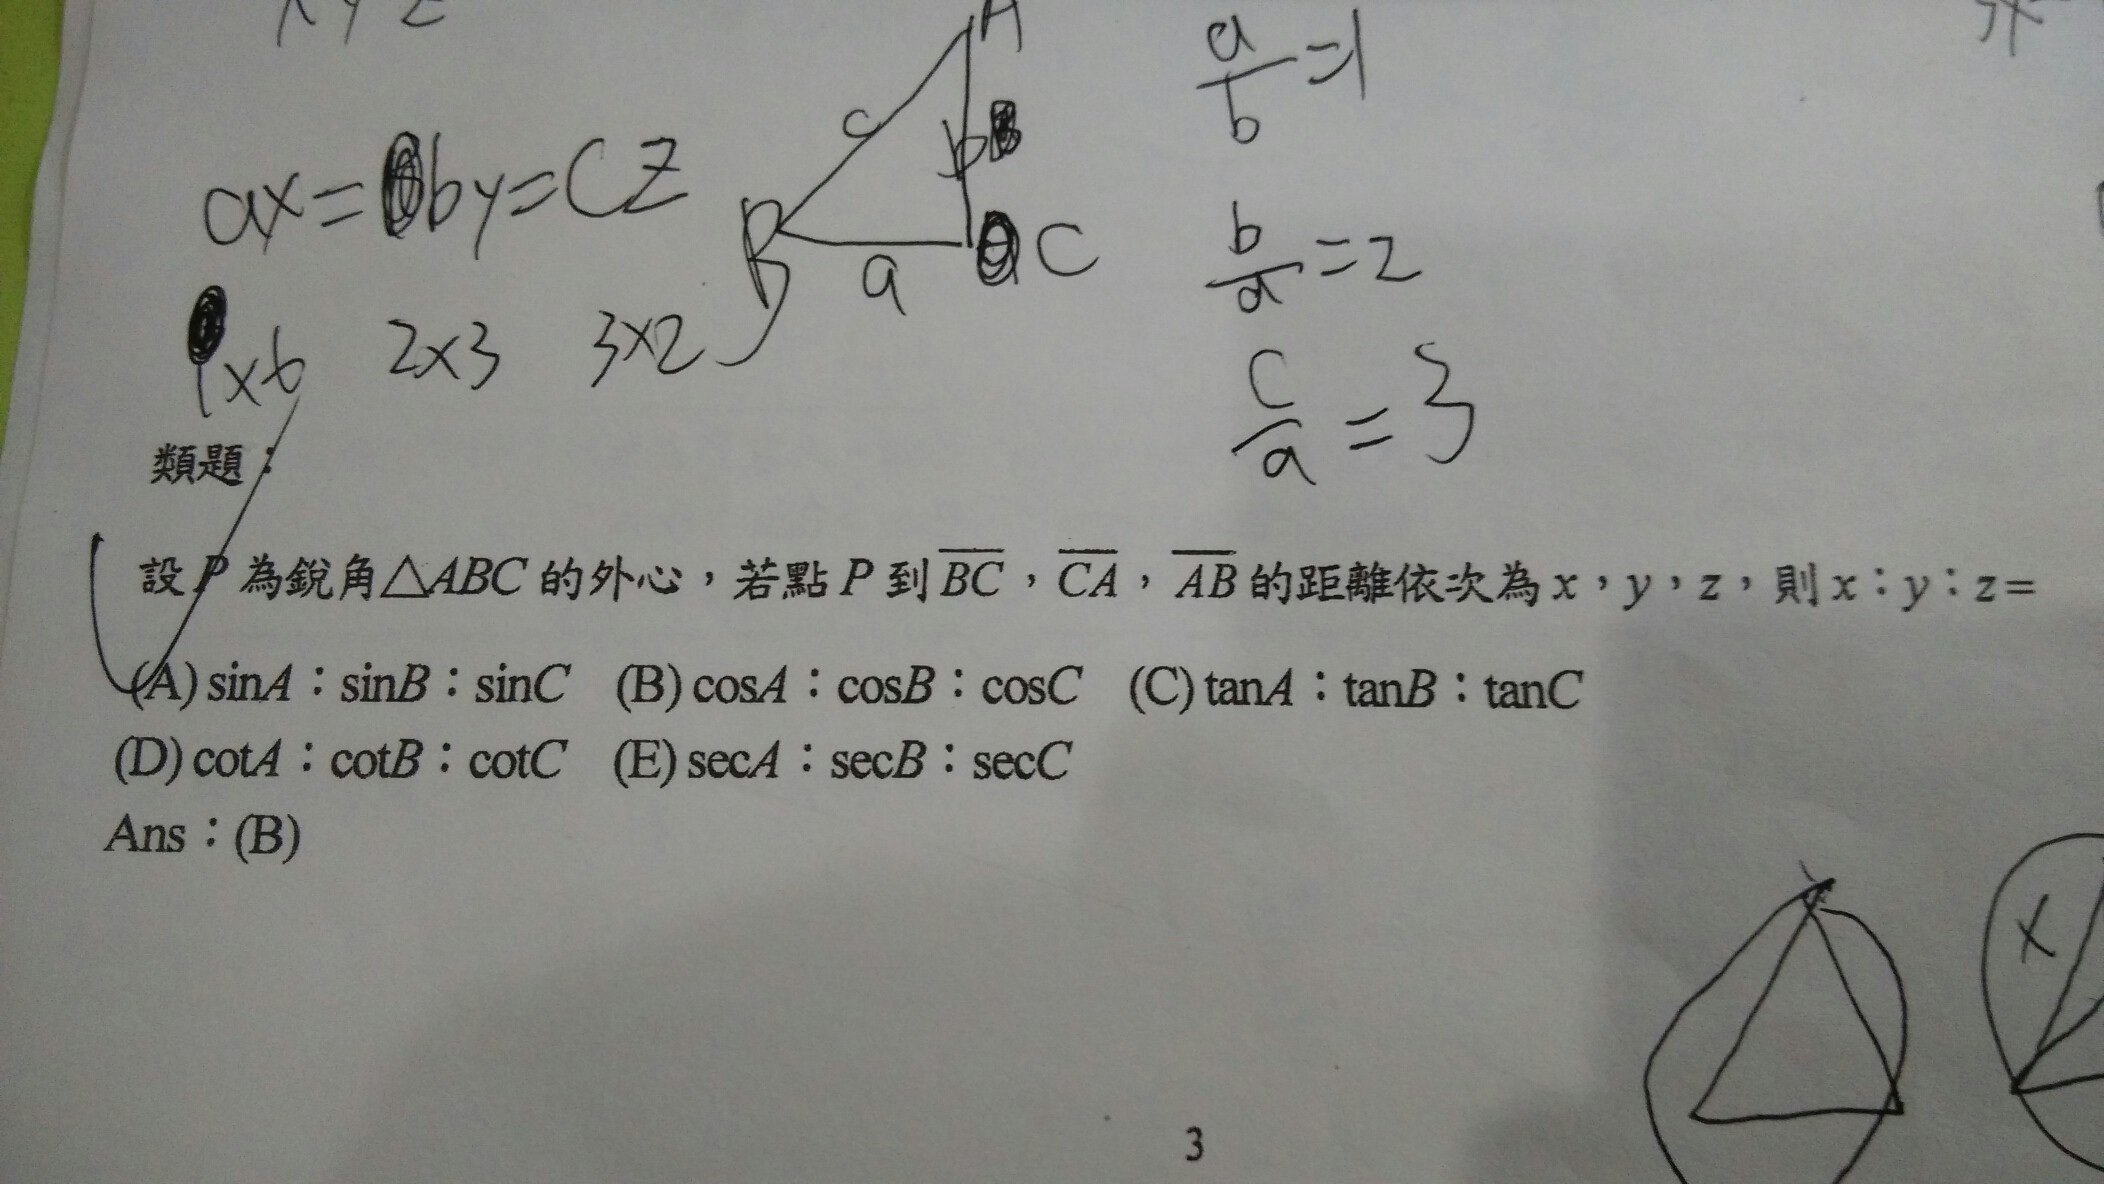 x y z
A
a/b=1
c
b
ax=by=CZ
B
a
C
b/a=2
1x6 2x3 3x2
c/a=3
類題：
設 P 為銳角△ABC 的外心，若點 P 到 BC，CA，AB 的距離依次為 x，y，z，則 x：y：z=
(A) sinA：sinB：sinC (B) cosA：cosB：cosC (C) tanA：tanB：tanC
(D) cotA：cotB：cotC (E) secA：secB：secC
Ans：(B)
x
3